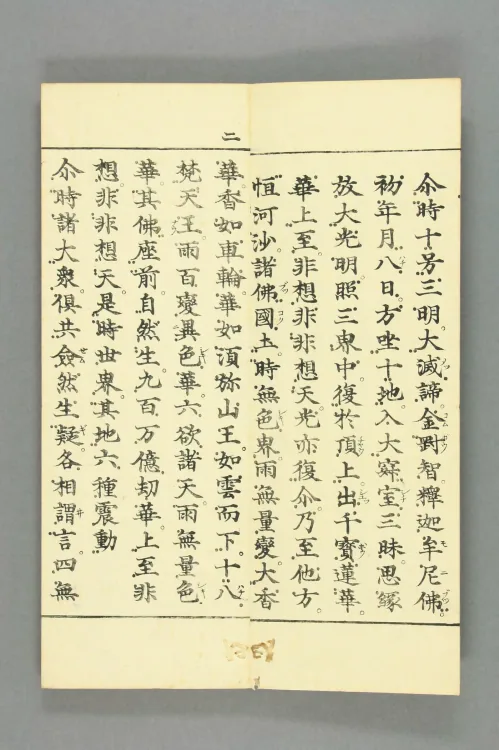 尒時十号三明大滅諦金剛智釋迦牟尼佛
初年月八日方坐十地入大寂室三昧思縁
放大光明照三界中復於頂上出千寳蓮華
華上至非想非非想天光亦復尒乃至他方
恒河沙諸佛國土時無色界雨無量變大香
二
華香如車輪華如湏弥山王如雲而下十八
梵天王雨百變異色華六欲諸天雨無量色
華其佛座前自然生九百万億刧華上至非
想非非想天是時世界其地六種震動
尒時諸大衆俱共僉然生疑各相謂言四無